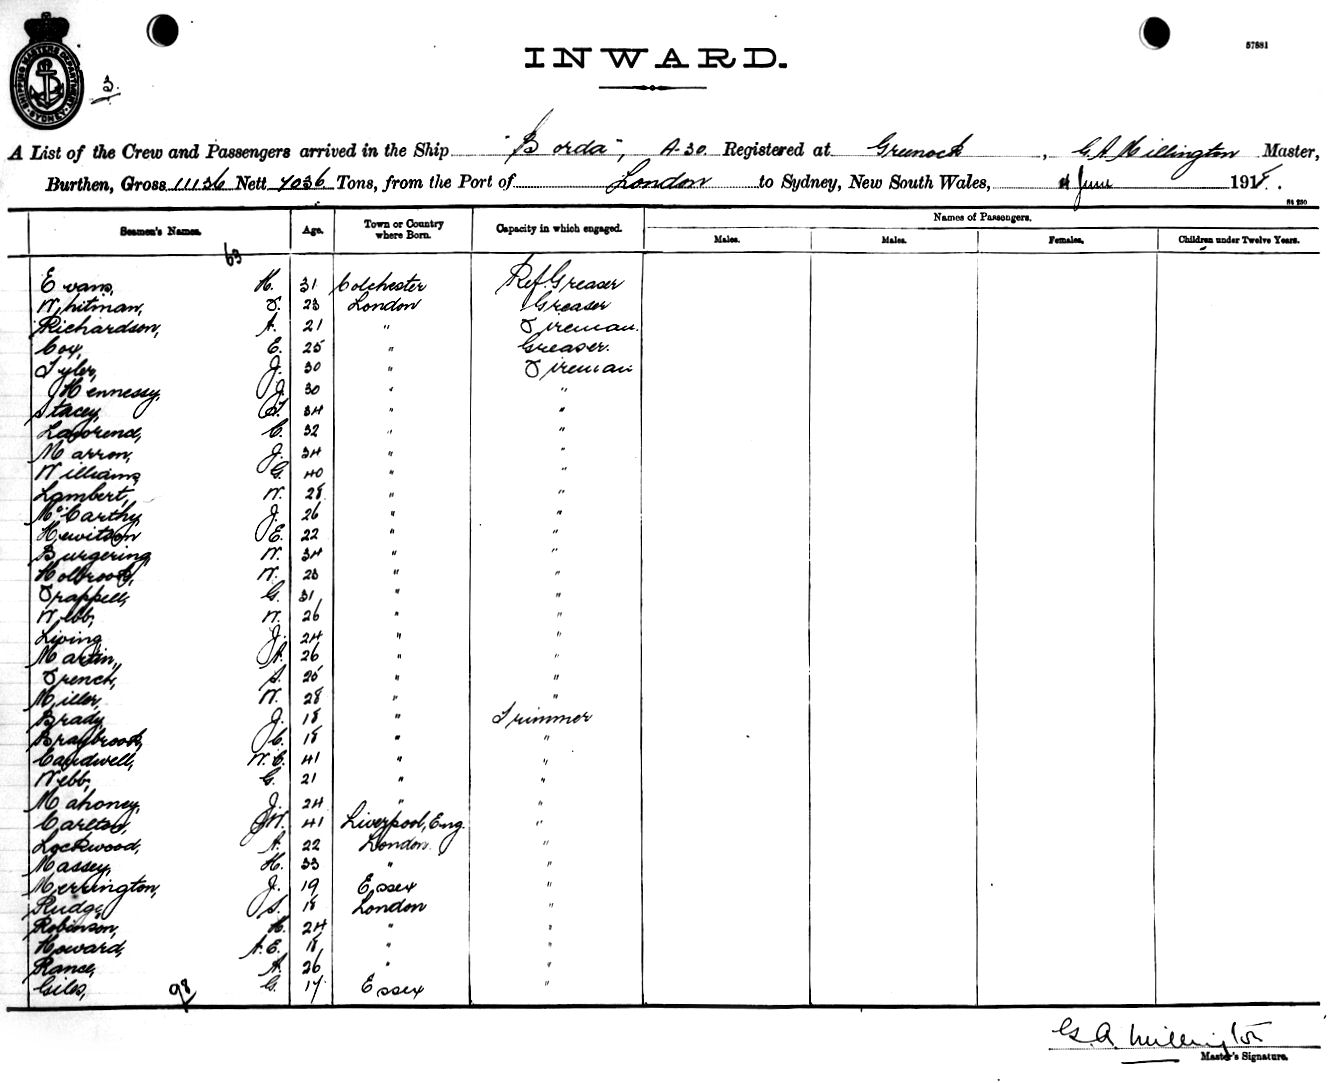 SHIPPING MASTERS DEPARTMENT SYDNEY
3.
57881
INWARD.
A List of the Crew and Passengers arrived in the Ship "Borda", A-30. Registered at Greenock, G. A. Millington Master,
Burthen, Gross 11136 Nett 7036 Tons, from the Port of London to Sydney, New South Wales, 4 June 191
Seamen's Names. Age. Town or Country where Born. Capacity in which engaged. Names of Passengers.
Males. Males. Females. Children under Twelve Years.
63
Evans, H. 31 Colchester Ref Greaser
Whitman, F. 23 London Greaser
Richardson, A. 21 " Fireman.
Cox, E. 25 " Greaser.
Tyler, J. 30 " Fireman
Hennessy, J. 30 " "
Stacey, 34 " "
C. 32 " "
Marron, J. 34 " "
Williams, G. 40 " "
Lambert, W. 28 " "
McCarthy, J. 26 " "
Hewitson E. 22 " "
Burgering W. 34 " "
Holbrook, W. 23 " "
Frappell, G. 31 " "
Webb, W. 26 " "
Living J. 24 " "
Martin, A. 26 " "
French, S. 25 " "
Miller, W. 28 " "
Brady, J. 18 " Trimmer
Braybrook, C. 18 " "
Caudwell, W. C. 41 " "
Webb, G. 21 " "
Mahoney, J. 24 " "
Carlton, J. W. 41 Liverpool, Eng. "
Lockwood, A. 22 London. "
Massey, H. 33 " "
Merrington, J. 19 Essex "
Rudge, S. 18 London "
Robinson, H. 24 " "
Howard, A. E. 18 " "
Rance, A. 26 " "
Giles, G. 17 Essex "
98
G. A. Millington
Master's Signature.